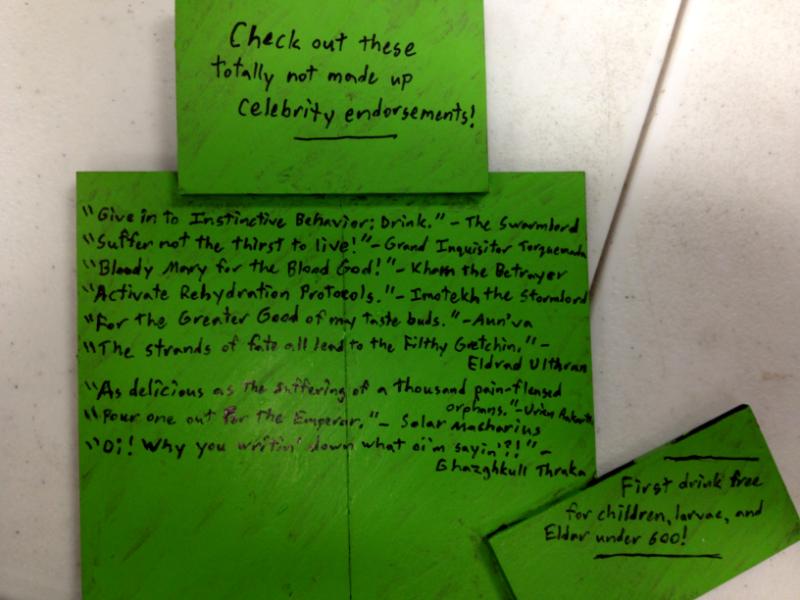 Check out these
totally not made up
celebrity endorsements!
"Give in to Instinctive Behavior; Drink." - The Swarmlord
"Suffer not the thirst to live!" - Grand Inquisitor Torquemada
"Bloody Mary for the Blood God!" - Kharn the Betrayer
"Activate Rehydration Protocols." - Imotekh the Stormlord
"For the Greater Good of my taste buds." - Aun'va
"The strands of fate all lead to the Filthy Gretchin." -
Eldrad Ulthran
"As delicious as the suffering of a thousand pain-flensed
orphans." - Urien
"Pour one out for the Emperor." - Solar Macharius
"Oi! Why you writin' down what oi'm sayin'?!" -
Ghazghkull Thraka
First drink free
for children, larvae, and
Eldar under 600!